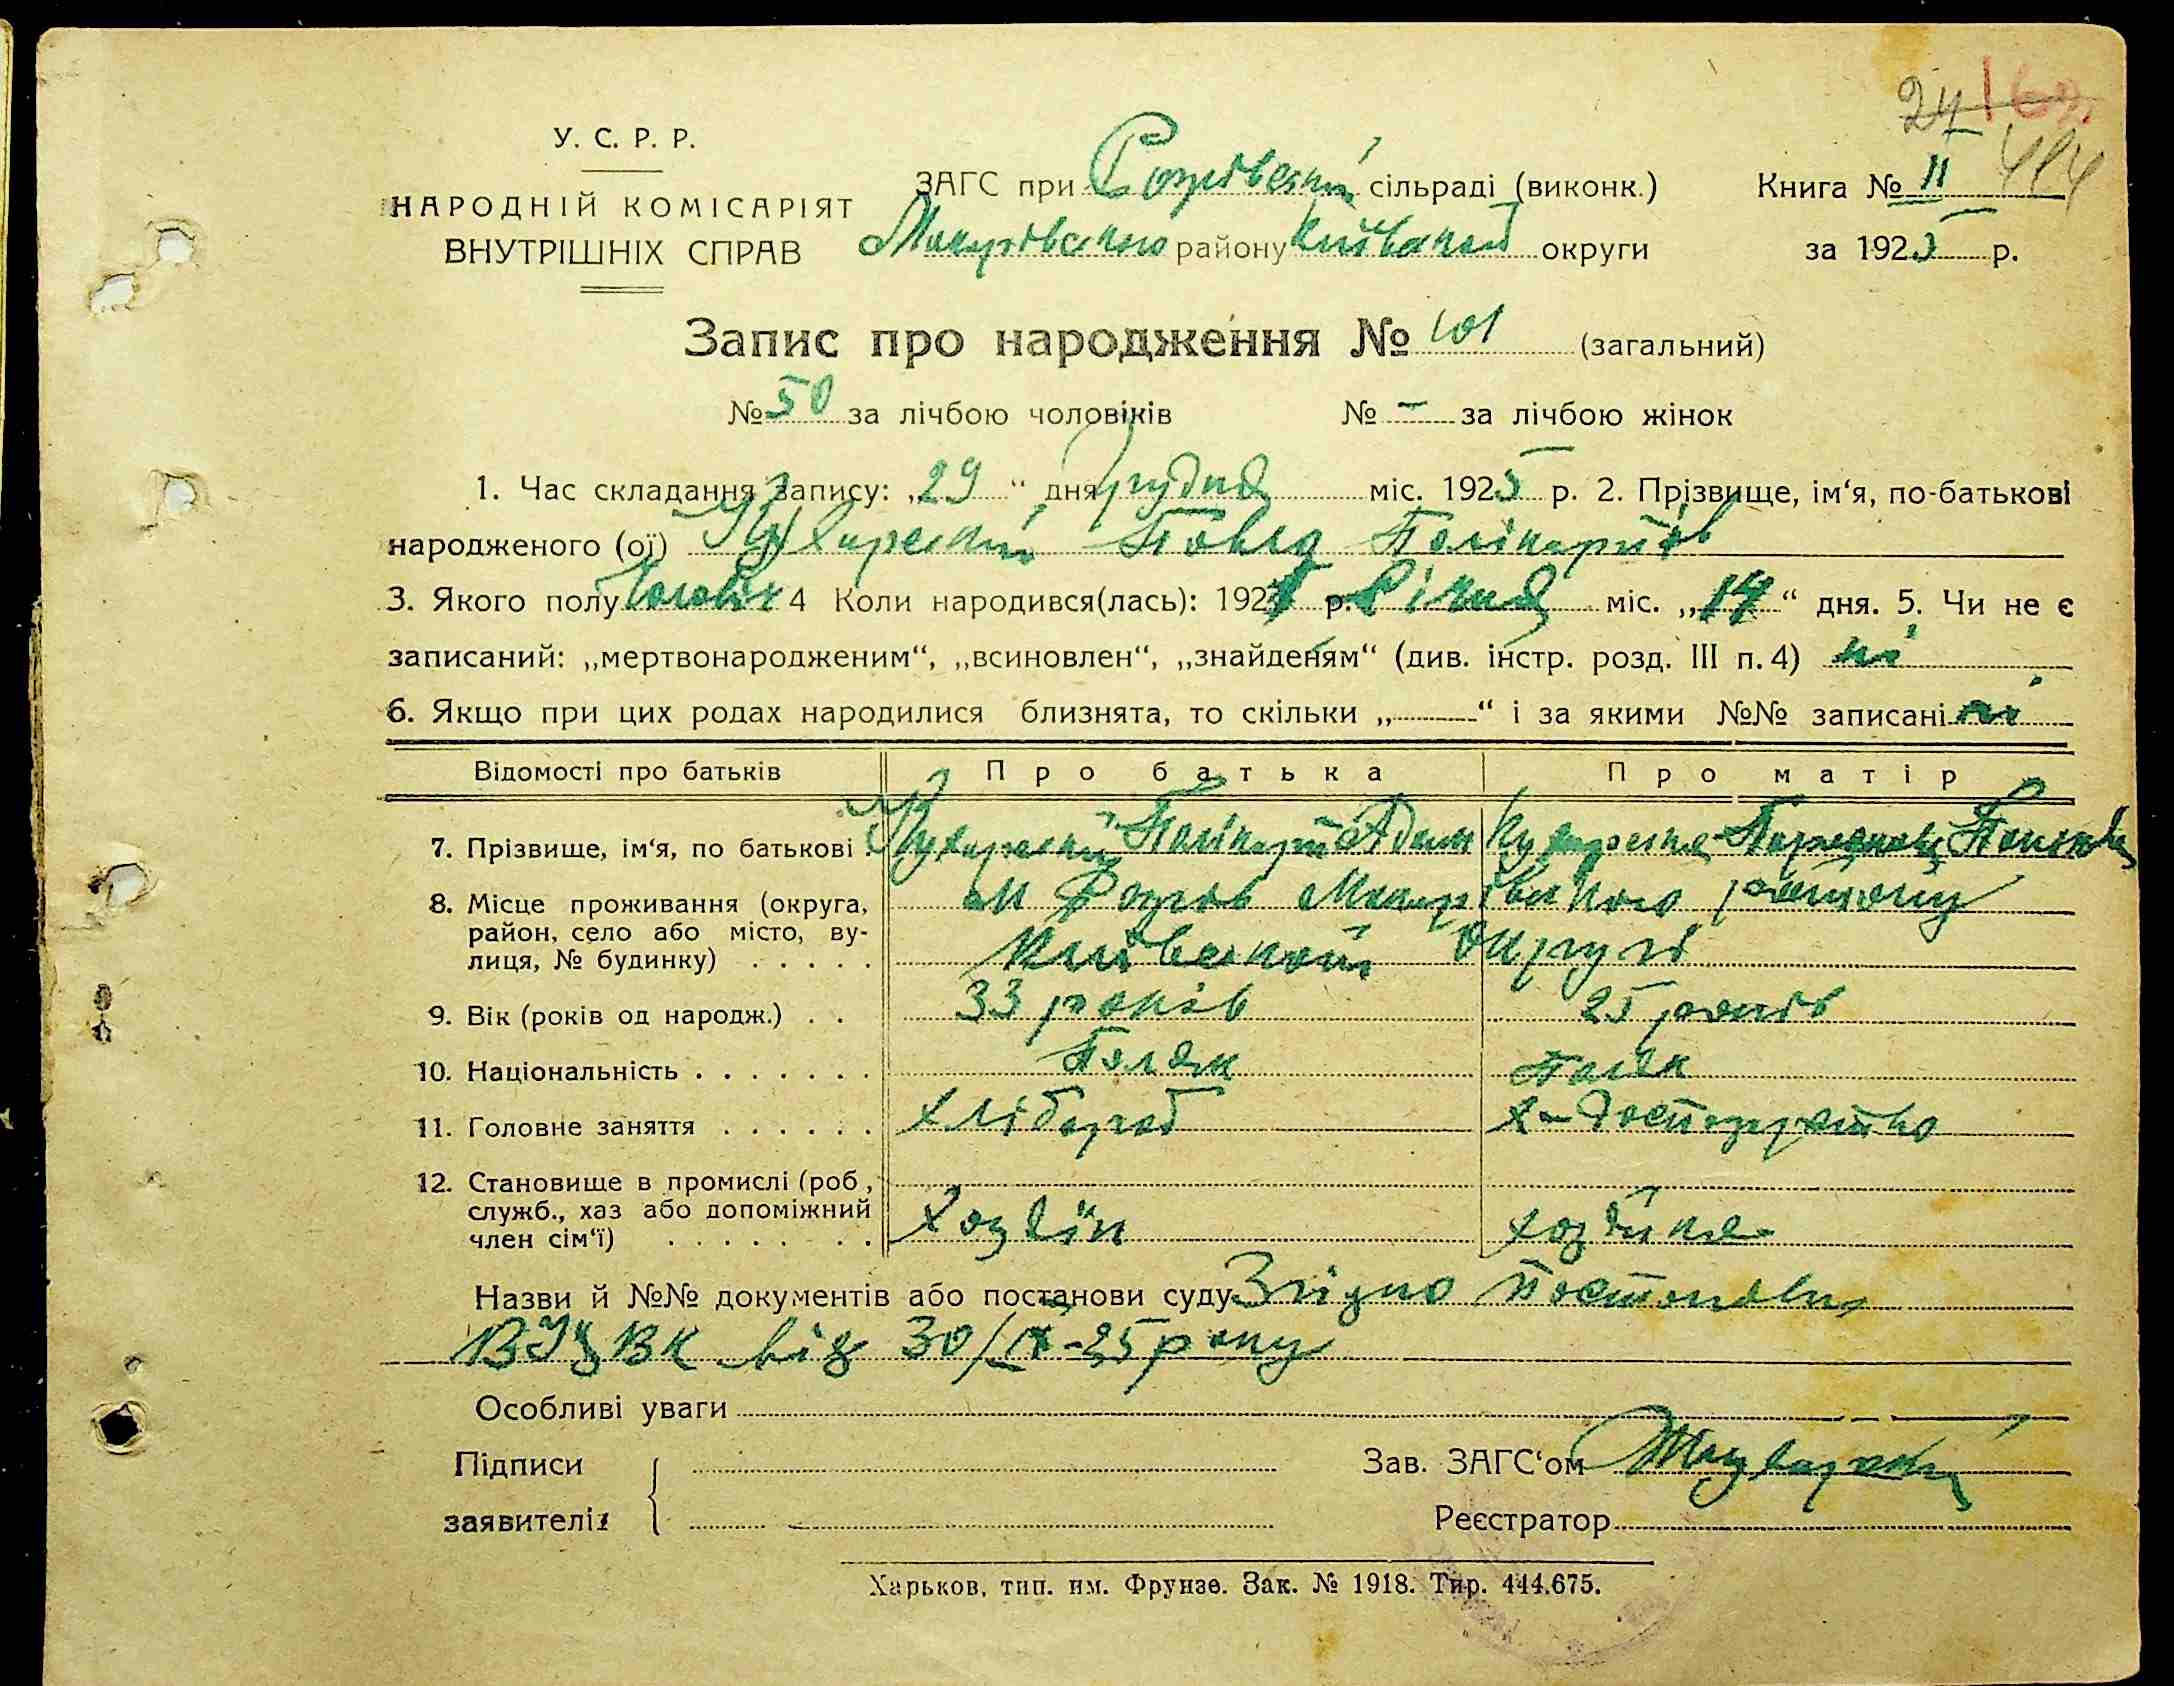 У. С. Р. Р.
НАРОДНІЙ КОМІСАРІЯТ
ВНУТРІШНІХ СПРАВ
ЗАГС при сільраді (виконк.)
Макарівського району Київської округи
Книга № II
за 1925 р.
Запис про народження № 101 (загальний)
№ 50 за лічбою чоловіків № — за лічбою жінок
1. Час складання запису: „29“ дня Грудня міс. 1925 р. 2. Прізвище, ім‘я, по-батькові
народженого (ої) Кухарский Павло Полікарпов
3. Якого полу 4 Коли народився(лась): 192 р. Січня міс. „14“ дня. 5. Чи не є
записаний: „мертвонародженим“, „всиновлен“, „знайденям“ (див. інстр. розд. III п. 4) ні
6. Якщо при цих родах народилися близнята, то скільки „—“ і за якими №№ записані ні
Відомості про батьків Про батька Про матір
7. Прізвище, ім‘я, по батькові . Кухарский Полікарп Адам Кухарская
8. Місце проживання (округа,
район, село або місто, ву-
лиця, № будинку) . . . . .
м Макарівського району
Київської Округи
9. Вік (років од народж.) . . 33 років 25 років
10. Національність . . . . . . . Поляк Поляк
11. Головне заняття . . . . . . хлібороб
12. Становище в промислі (роб,
служб., хаз або допоміжний
член сім‘ї) . . . . . . . .
хозяїн хозяйка
Назви й №№ документів або постанови суду Згідно постанови
ВУЦВК від 30/IX-25 року
Особливі уваги
Підписи
заявителів
Зав. ЗАГС‘ом
Реєстратор
Харьков, тип. им. Фрунзе. Зак. № 1918. Тир. 444.675.